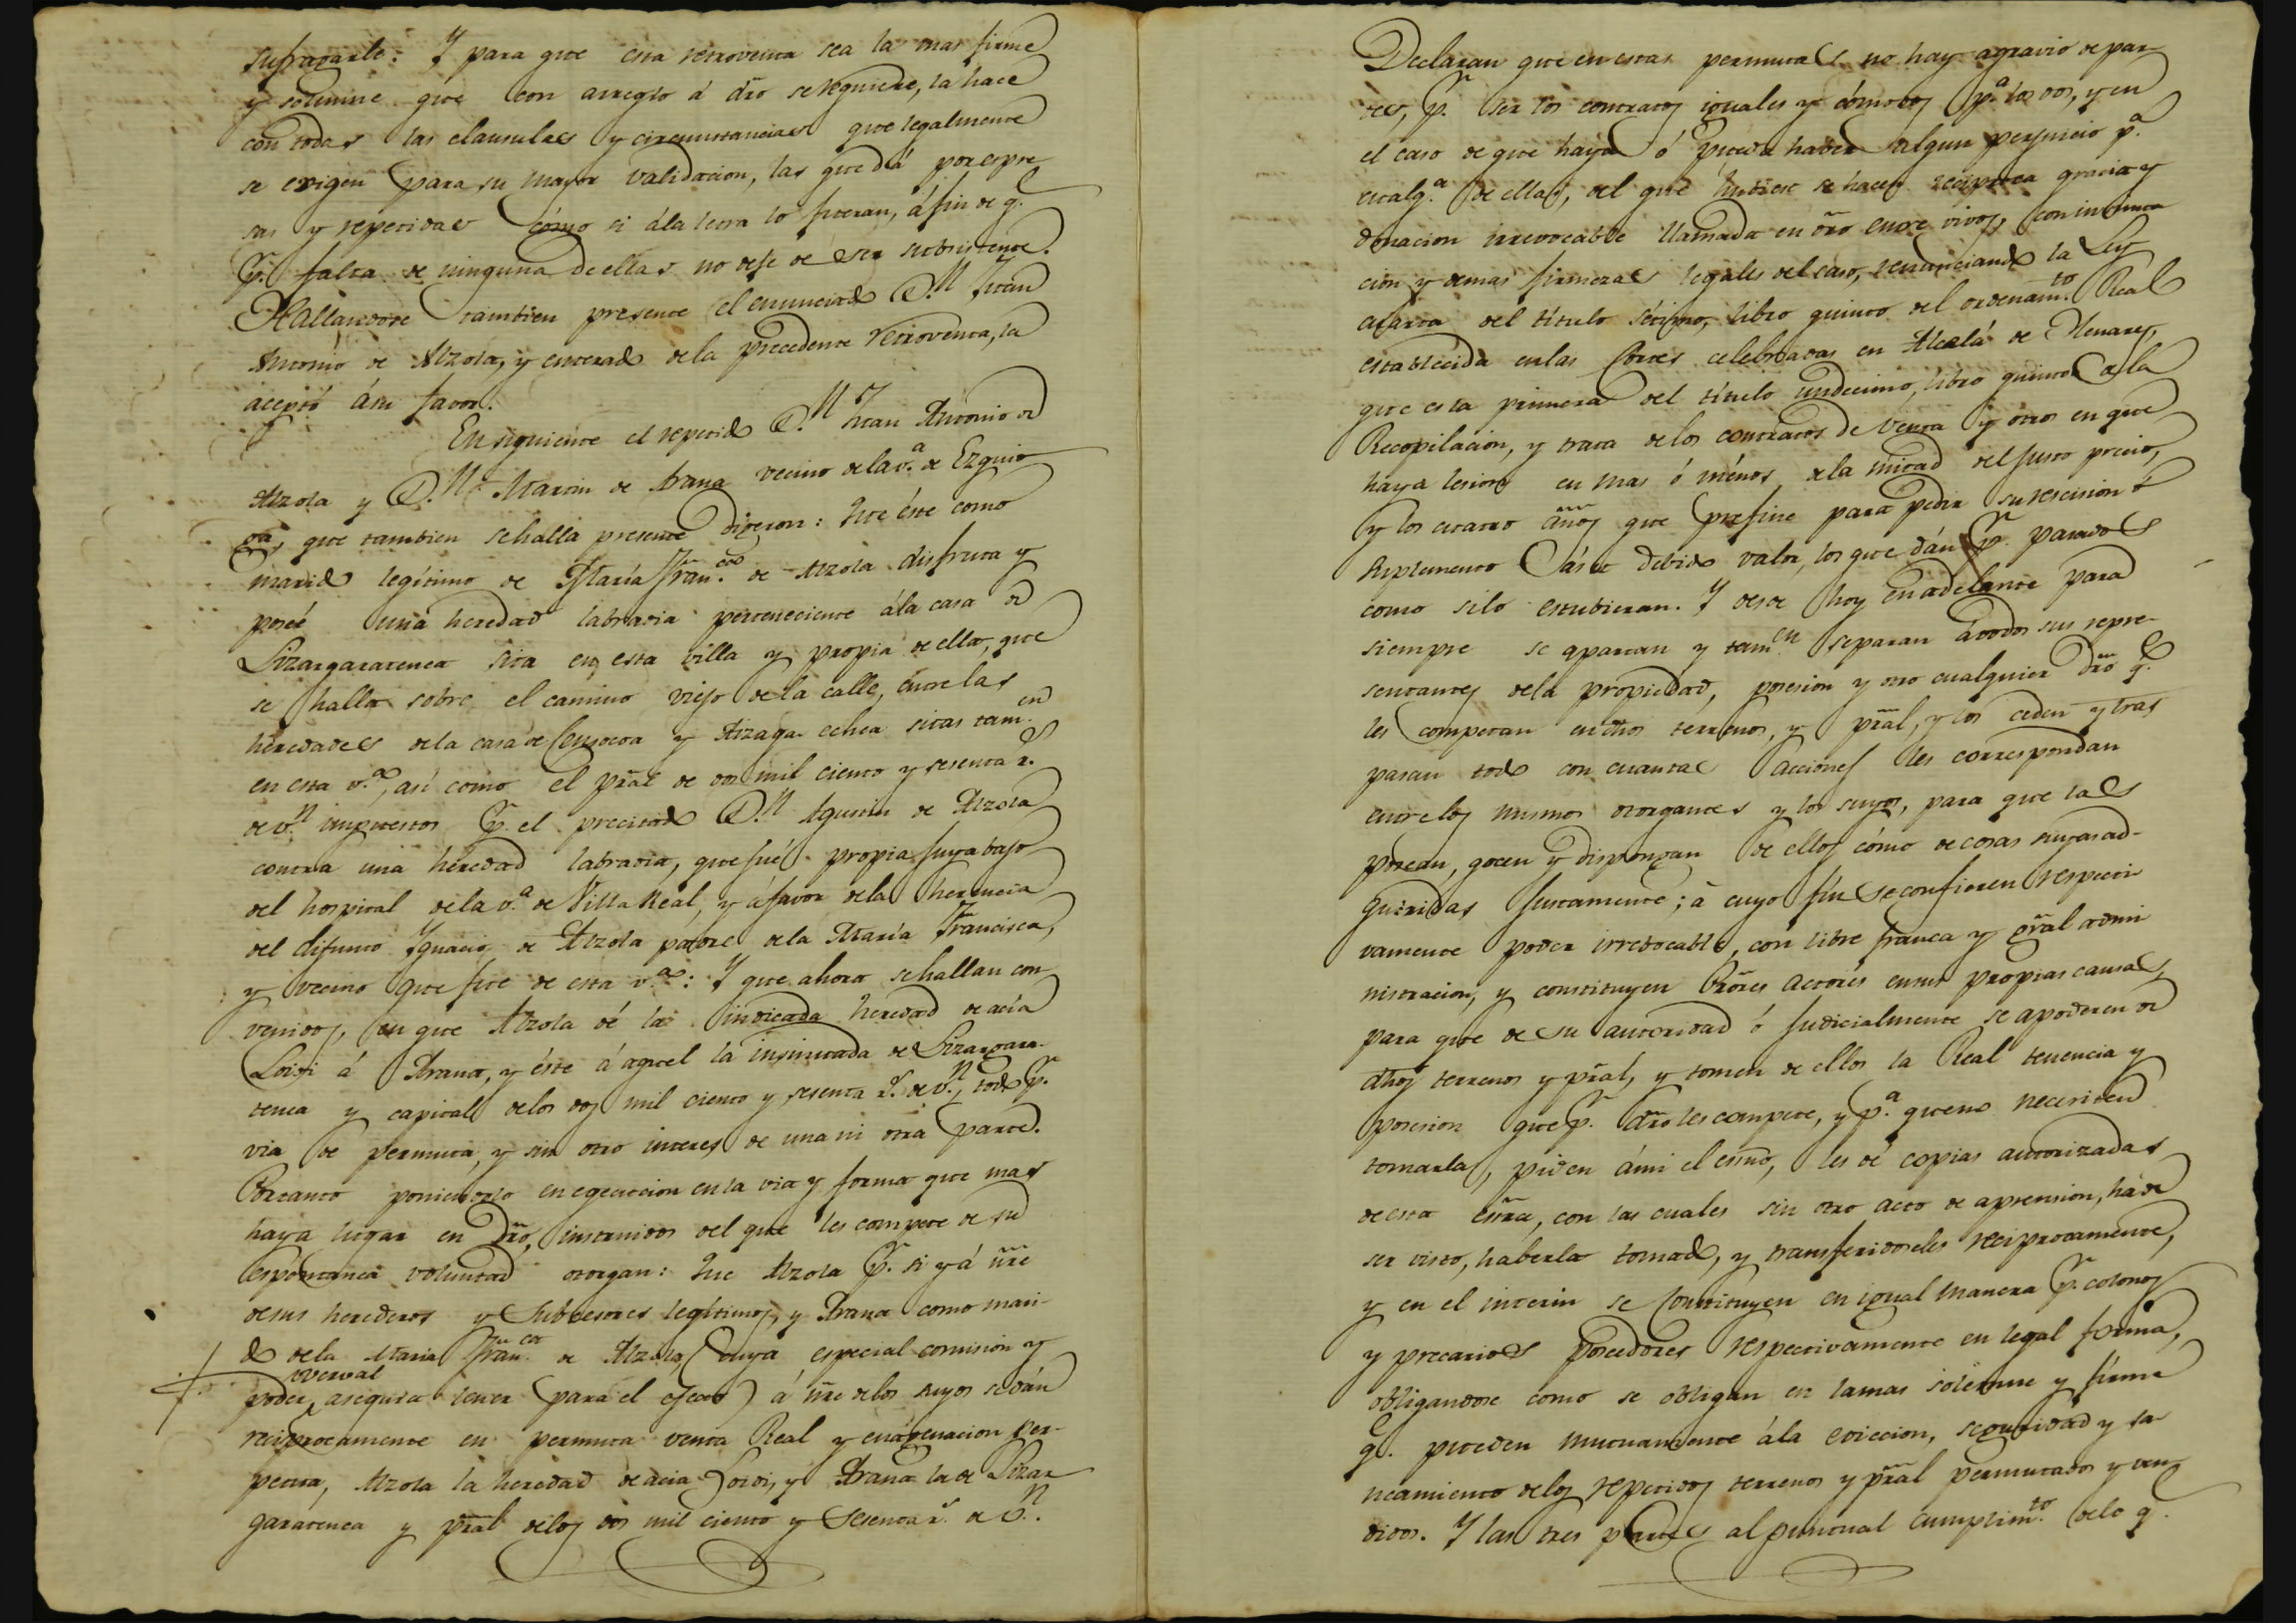 sufragarle: Y para que esta retroventa sea la mas firme
y solemne que con arreglo á dro se requiere, la hace
con todas las clausulas y circunstancias que legalmente
se exigen para su mayor validacion, las que dá por espre
sas y repetidas cómo si á la letra lo fueran, á fin de q.e
p.r falta de ninguna de ellas no deje de ser subsistente.
Hallandose tambien presente el enunciado D.n Juan
Antonio de Alzola, y enterado de la precedente retroventa, la
aceptó á su favor.
En siguiente el repetido D.n Juan Antonio de
Alzola y D.n Martin de Arana vecino de la v.a de Ezquio
ga, que tambien se halla presente digeron: Que éste como
marido legítimo de María Fran.ca de Alzola disfruta y
poseé una heredad labradia perteneciente á la casa de
Lizargaratenea sita en esta villa y propia de ella, que
se halla sobre el camino viejo de la calle, entre las
heredades de la casa de y Aizaga echea sitas tam.en
en esta v.a, así como el pral de dos mil ciento y sesenta r.s
de v.n impuestos p.r el precitado D.n Agustin de Alzola
contra una heredad labradia, que fué propia suya bajo
del hospital de la v.a de Villa Real, y á favor de la herencia
del difunto Ygnacio de Alzola padre de la María Francisca,
y vecino que fue de esta v.a: Y que ahora se hallan con
venidos, en que Alzola dé la indicada heredad de acia
Loidi á Arana, y éste á aquel la insinuada de Lizargara-
tenea y capital de los dos mil ciento y sesenta r.s de v.n, todo p.r
via de permuta, y sin otro interes de una ni otra parte.
Por tanto poniendolo en egecucion en la via y forma que mas
haya lugar en dro, instruidos del que les compete de su
espontanea voluntad otorgan: Que Alzola p.r si y á nre
de sus herederos y subcesores legítimos, y Arana como mari-
do de la Maria Fran.ca de Alzola, (cuya especial comision y
verval
poder asegura tener para el efecto) á nre de los suyos se dán
reciprocamente en permuta venta Real y enagenacion per-
petua, Alzola la heredad de acia Loidi, y Arana la de Lizar
garatenea y pral de los dos mil ciento y sesenta r.s de v.n.
Declaran que en estas permutas no hay agravio de par-
tes, p.r ser los contratos iguales y cómodos p.a los dos, y en
el caso de que haya ó pueda haber algun perjuicio p.a
cualq.a de ellas, del que hubiese se hacen reciproca gracia y
donacion irrevocable llamada en dro entre vivos, con insinua
cion y demas firmezas legales del caso, renunciando la Ley
cuarta del título sétimo, libro quinto del ordenam.to Real
establecida en las Cortes celebradas en Alcalá de Henares,
que es la primera del título undecimo, libro quinto de la
Recopilacion, y trata de los contratos de venta y otros en que
haya lesion en mas ó ménos de la mitad del justo precio,
y los cuatro años que prefine para pedir su rescision ó
suplemento á su debido valor, los que dán p.r pasados
como si lo estubieran. Y desde hoy en adelante para
siempre se apartan y tam.en separan á todos sus repre-
sentantes de la propiedad, posesion y otro cualquier dro q.e
les competan en dhos terrenos, y pral, y los ceden y tras
pasan todo con cuantas acciones les correspondan
entre los mismos otorgantes y los suyos, para que las
posean, gocen y dispongan de ellos cómo de cosas suyas ad-
quiridas justamente; á cuyo fin se confieren respecti
vamente poder irrebocable, con libre franca y gral admi
nistracion, y constituyen Prores actores en sus propias causas,
para que de su autoridad ó judicialmente se apoderen de
dhos terrenos y pral, y tomen de ellos la Real tenencia y
posesion que p.r dro les compete, y p.a que no necesiten
tomarla, piden á mi el esno, les dé copias autorizadas
de esta esra, con las cuales sin otro acto de aprension, ha de
ser visto, haberla tomado, y transferidoseles reciprocamente,
y en el interin se constituyen en igual manera p.r colonos
y precarios poseedores respectivamente en legal forma,
obligandose como se obligan en la mas solemne y firme
q.e pueden mutuamente á la eviccion, seguridad y sa
neamiento de los repetidos terrenos y pral permutados y ven
didos. Y las tres partes al puntual cumplim.to de lo q.e